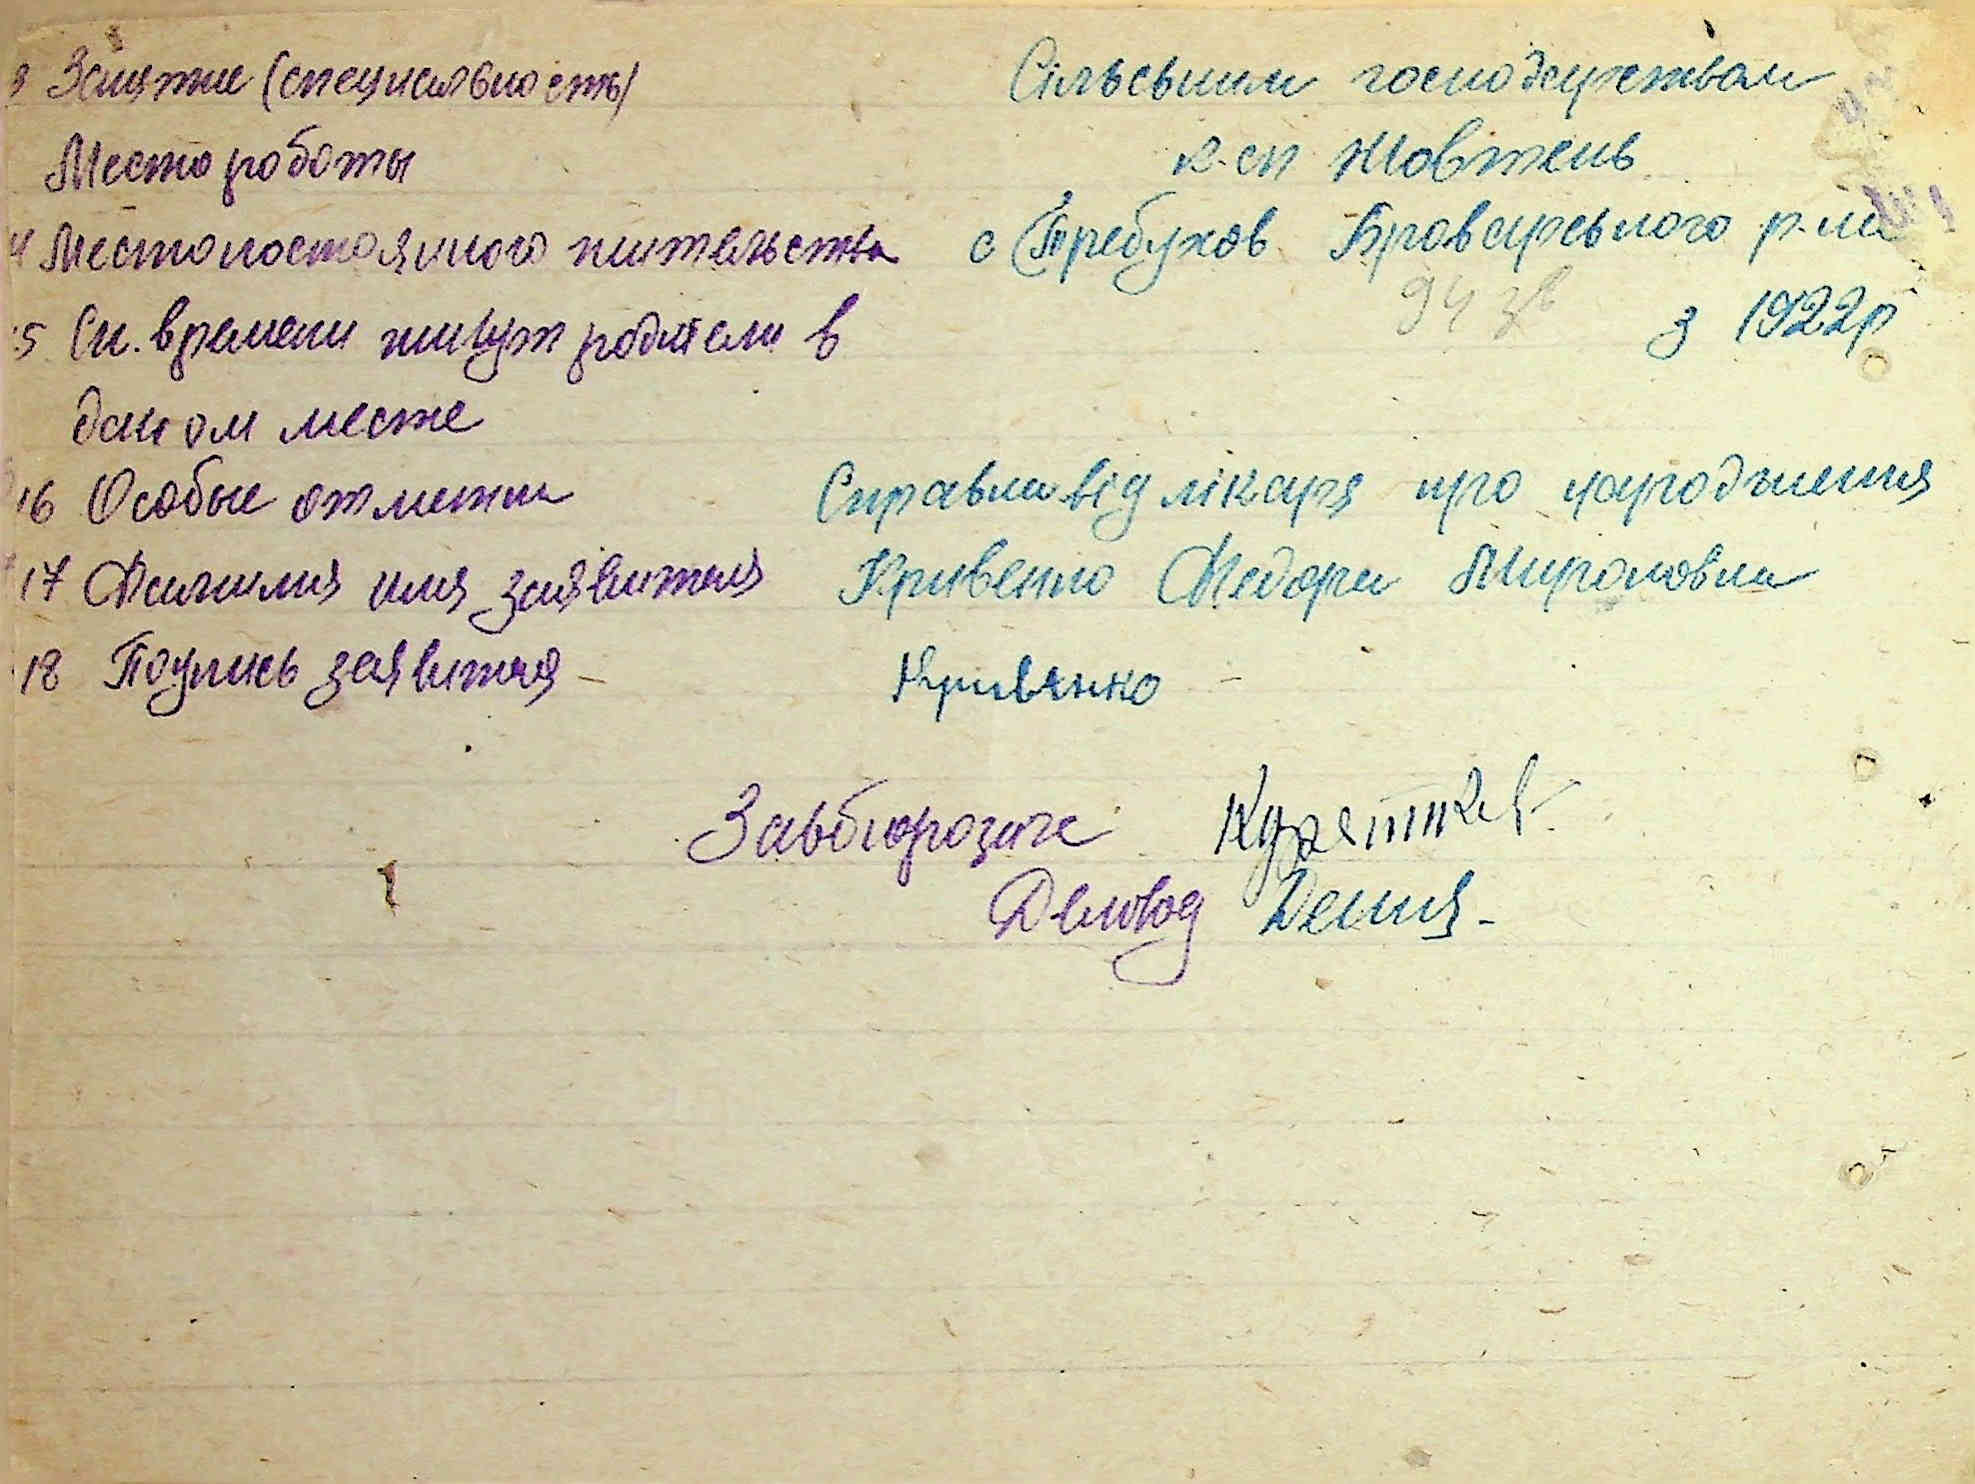 3 Занятие (специальность) Сільським господарством
Место роботы к-сп Жовтень
4 Место постоянного жительства с Требухов Броварського р-на
94 зв
15 Ск. времени живут родители в з 1922р
даном месте
16 Особые отметки Справка від лікаря про народження
17 Фамилия имя заявителя Кривенко Федора Мироновна
18 Подпись заявителя - Кривенко -
Завбюрозагс
Деловод